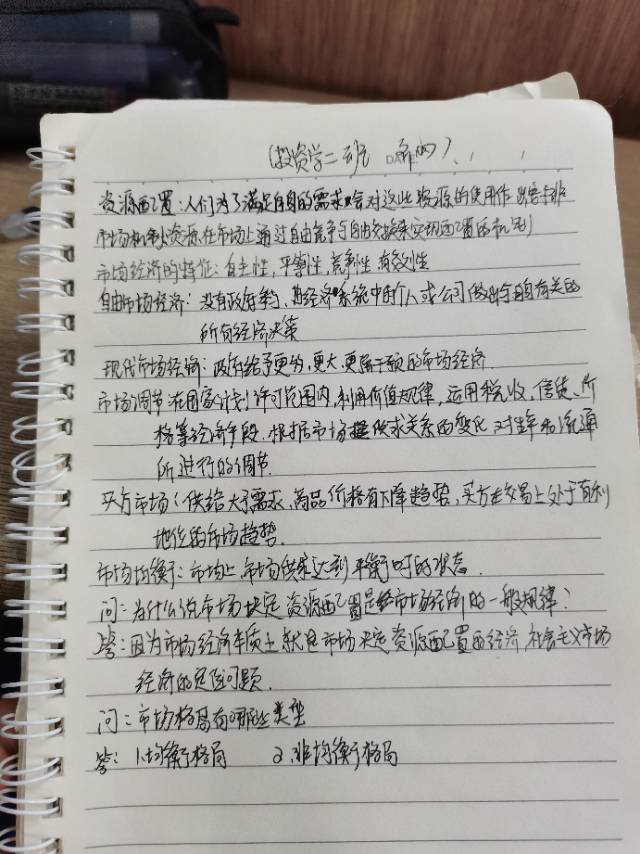 (投资学二班
资源配置:人们为了满足自身的需求会对这些资源的使用作出安排
市场机制:资源在市场上通过自由竞争与自由交换来实现配置的机制
市场经济的特征:自主性,平等性,竞争性,有效性
自由市场经济:没有政府参与,其经济系统中由个人或公司做出与有关的
所有经济决策
现代市场经济:政府给予更多,更大,更干预的市场经济.
市场调节:在国家计划许可范围内,利用价值规律,运用税收、信贷、价
格等经济手段,根据市场供求关系的变化,对生产和流通
所进行的调节.
买方市场:供给大于需求,商品价格有下降趋势,买方在交易上处于有利
地位的市场趋势.
市场均衡:市场上,市场供求达到平衡时的状态.
问:为什么说市场决定资源配置是市场经济的一般规律?
答:因为市场经济本质上就是市场决定资源配置的经济,社会主义市场
经济的问题.
问:市场格局有哪些类型
答:1.均衡格局 2.非均衡格局